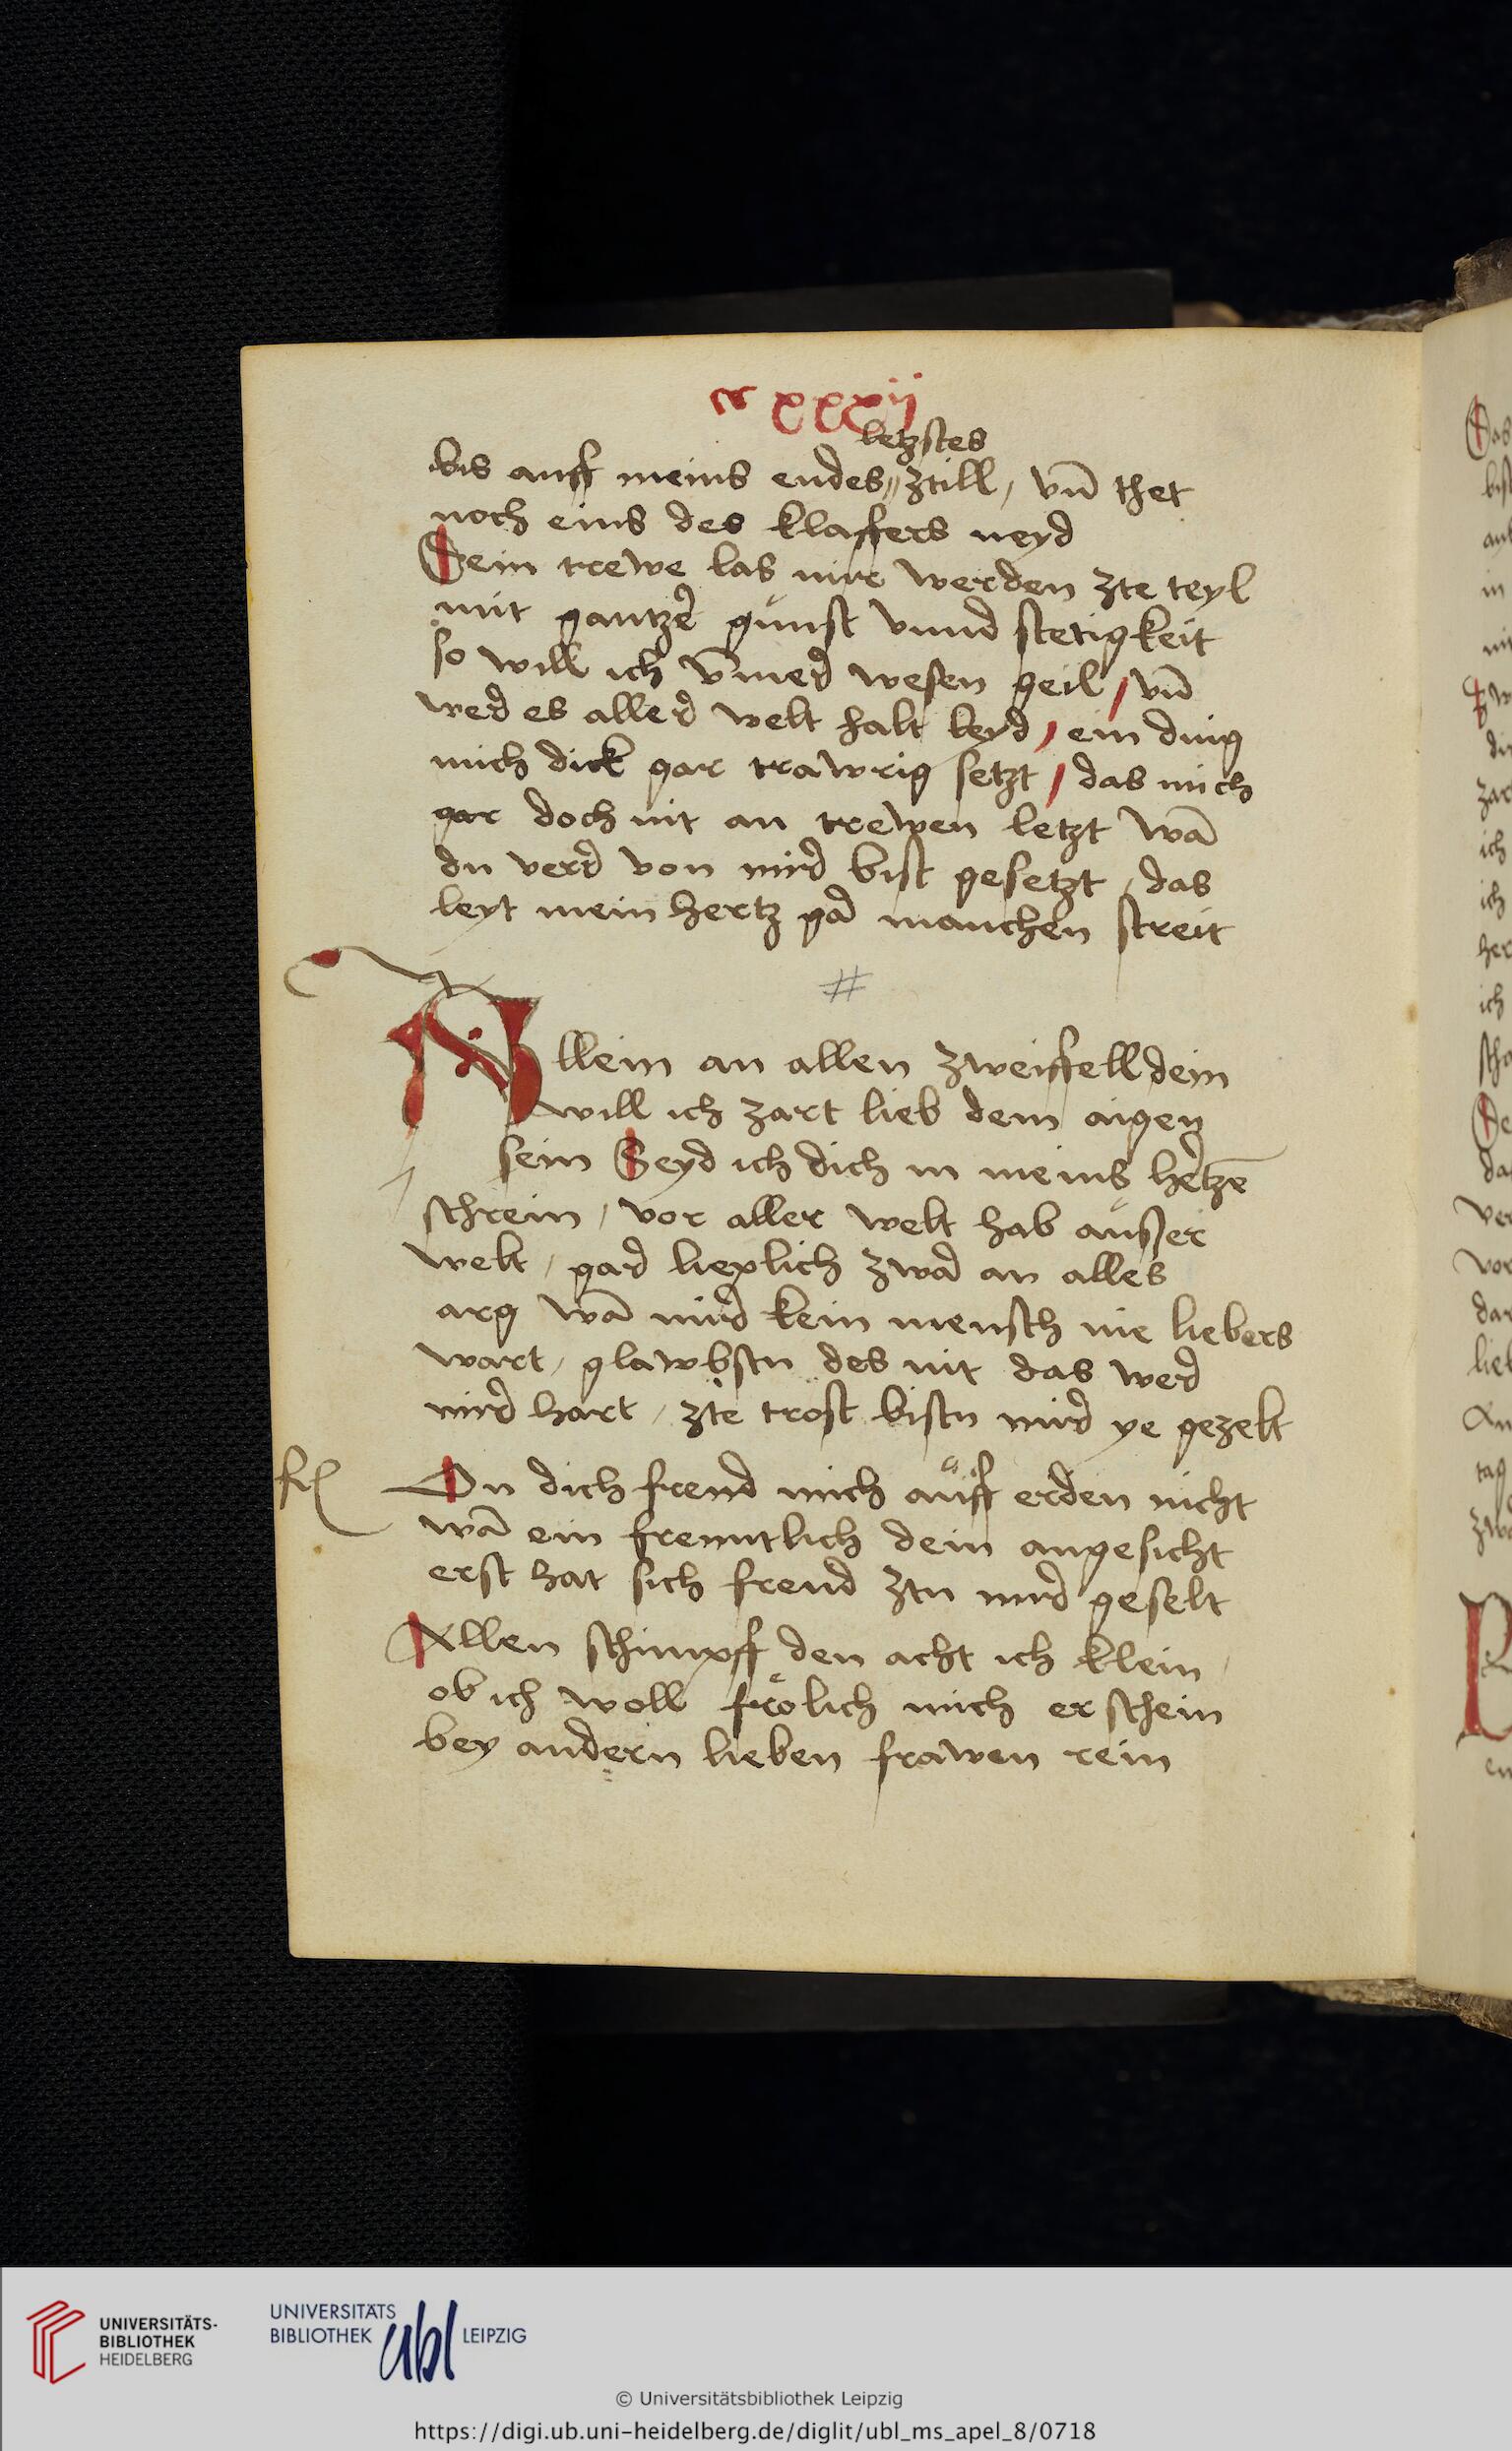 cxxxij
letzstes
bis auff meins endes„ ztill / vñ thet
noch eins des klaffers neyd
Dein trewe las mir werden zte teyl
mit gantzer gunst vnnd stetigkeit
so will ich ỹmer wesen geil / vñ
wer es aller welt halt leyd / ein ding
mich dick gar trawrig setzt / das mich
gar doch nit an trewen letzt wā
du verr von mir bist gesetzt / das
leyt mein hertz gar manchen streit
#
Allein an allen zweiffell dein
will ich zart lieb dem aigen
sein Seyd ich dich in meins hertzē
schrein / vor aller welt hab ausser
welt / gar lieplich zwar an alles
arg wā mir kein mensch nie liebers
wart / glawbstu des nit das wer
mir hart / zte trost bistu mir ye gezelt
On dich freud mich auff erden nicht
wā ein freuntlich dein angesicht
erst hat sich freud ztu mir geselt
Allen schimpff den acht ich klein
ob ich woll frölich mich erschein
bey andern lieben frawen rein
UNIVERSITÄTS-
BIBLIOTHEK
HEIDELBERG
UNIVERSITÄTS
BIBLIOTHEK
ubl
LEIPZIG
© Universitätsbibliothek Leipzig
https://digi.ub.uni-heidelberg.de/diglit/ubl_ms_apel_8/0718